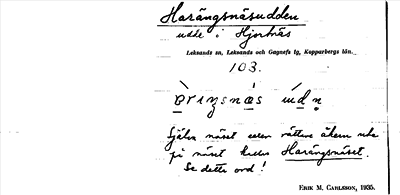 Harängsnäsudden
udde i Hjortnäs
Leksands sn, Leksands och Gagnefs tg, Kopparbergs län.
103.
Själva näset eller rättare åkern
på näset kallas Harängsnäset.
Se detta ord!
ERIK M. CARLSSON, 1935.